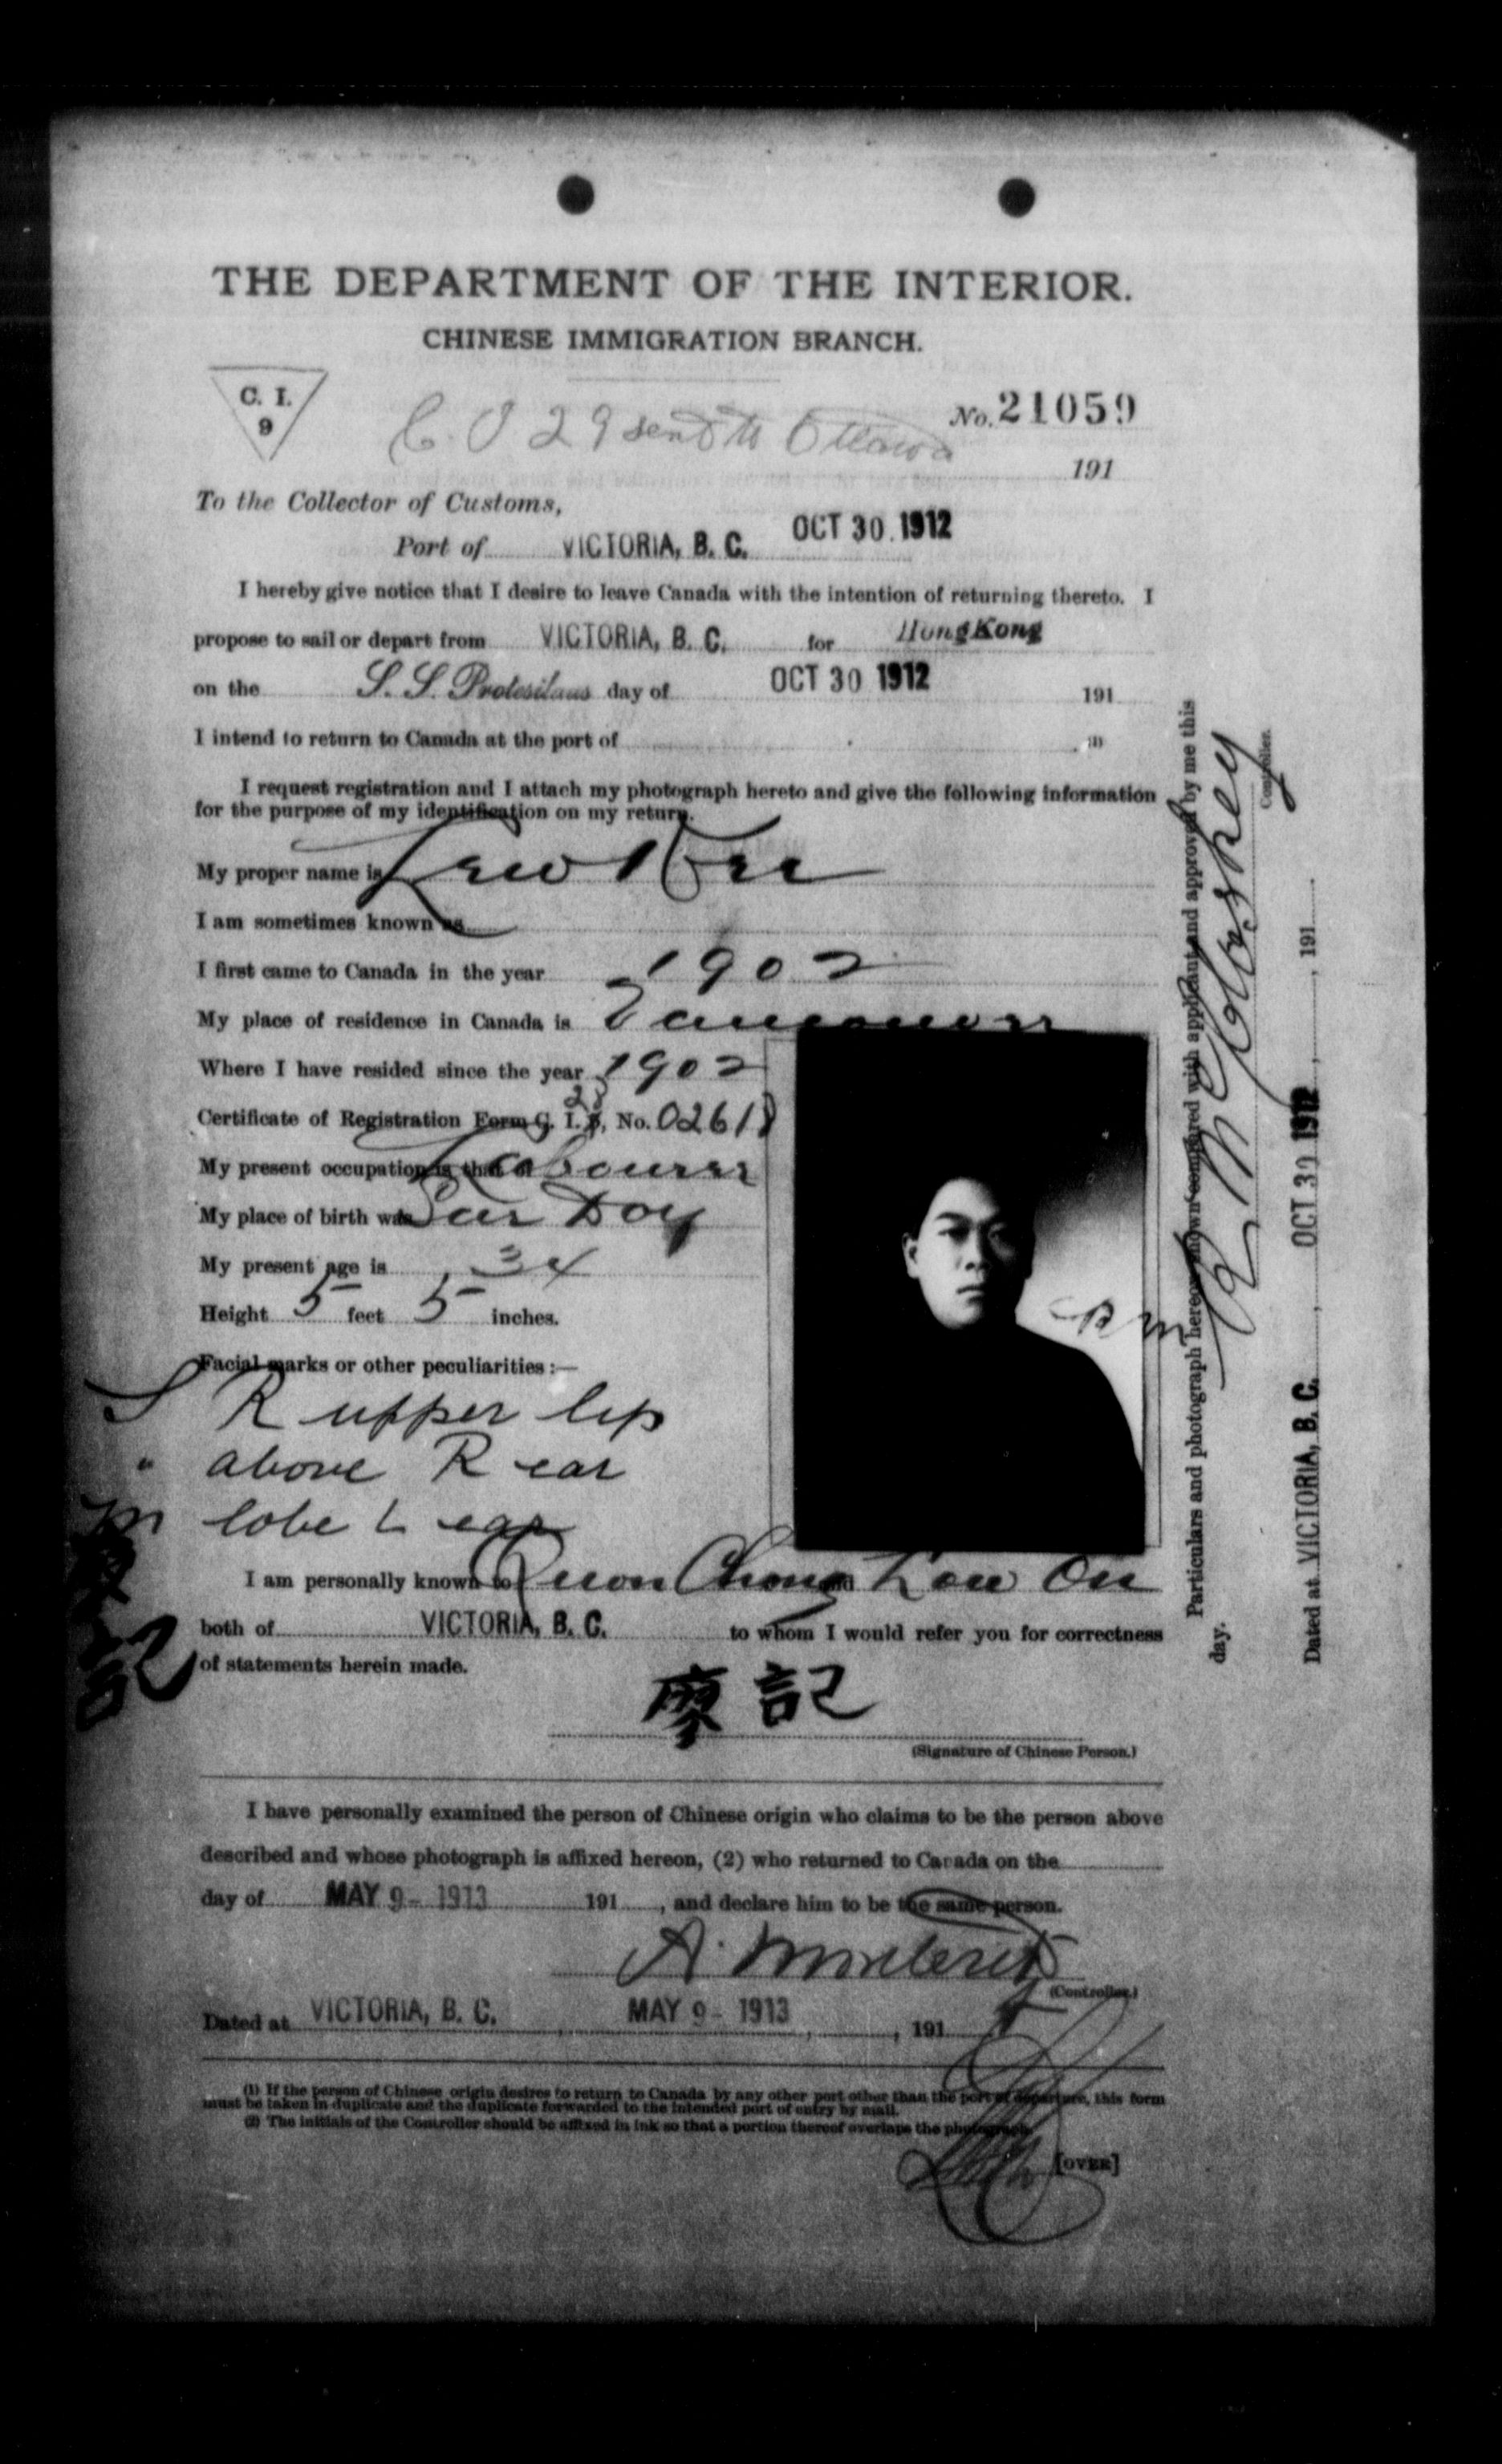 THE DEPARTMENT OF THE INTERIOR.
CHINESE IMMIGRATION BRANCH.
C. I.
9
C. I 29 sent to Ottawa
No. 21059
191
To the Collector of Customs,
Port of VICTORIA, B. C. OCT 30 1912
I hereby give notice that I desire to leave Canada with the intention of returning thereto. I
propose to sail or depart from VICTORIA, B. C. for HongKong
on the S. S. Protesilaus day of OCT 30 1912 191
I intend to return to Canada at the port of (1)
I request registration and I attach my photograph hereto and give the following information
for the purpose of my identification on my return.
My proper name is Lew Kee
I am sometimes known as
I first came to Canada in the year 1902
My place of residence in Canada is Vancouver
Where I have resided since the year 1902
Certificate of Registration Form C. I. 5, No. 02618
28
My present occupation is that of Labourer
My place of birth was Sar Doy
My present age is 34
Height 5 feet 5 inches.
Facial marks or other peculiarities :—
S R upper lip
" above R ear
M lobe L ear
I am personally known to Quon Chong and Low On
both of VICTORIA, B. C. to whom I would refer you for correctness
of statements herein made.
廖記
廖記
(Signature of Chinese Person.)
I have personally examined the person of Chinese origin who claims to be the person above
described and whose photograph is affixed hereon, (2) who returned to Canada on the
day of MAY 9 - 1913 191 , and declare him to be the same person.
A.
(Controller.)
Dated at VICTORIA, B. C. , MAY 9 - 1913 , , 191
(1) If the person of Chinese origin desires to return to Canada by any other port other than the port of departure, this form
must be taken in duplicate and the duplicate forwarded to the intended port of entry by mail.
(2) The initials of the Controller should be affixed in ink so that a portion thereof overlaps the photograph.
[OVER]
Particulars and photograph hereon shown compared with applicant and approved by me this
day.
Controller.
Dated at VICTORIA, B. C. , OCT 30 1912 , , 191